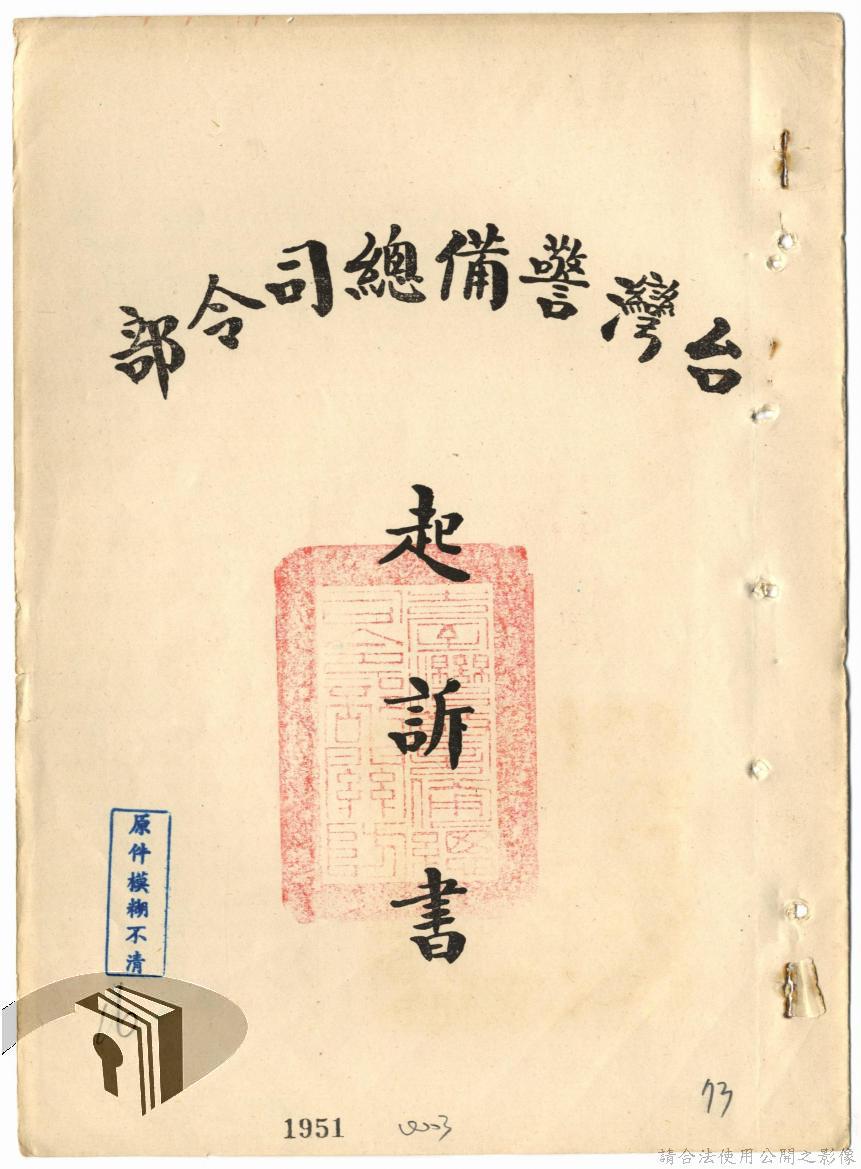 台灣警備總司令部
起訴書
原件模糊不清
16
1951
73
請合法使用公開之影像